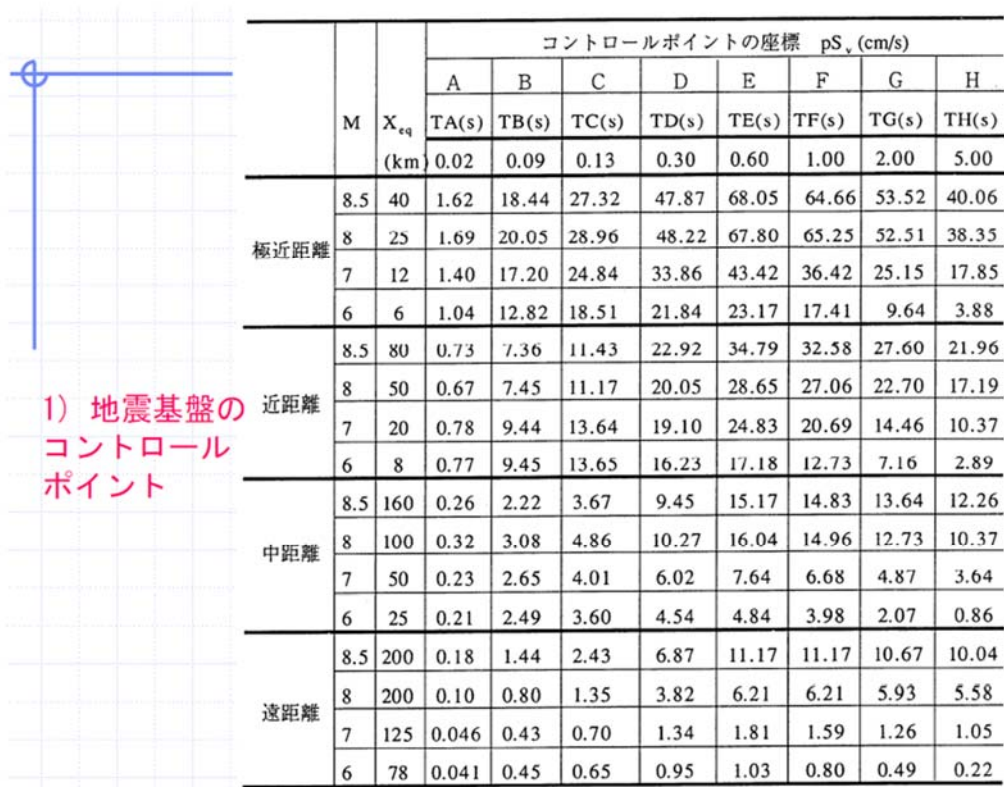 コントロールポイントの座標 pSv (cm/s)
A B C D E F G H
M Xeq TA(s) TB(s) TC(s) TD(s) TE(s) TF(s) TG(s) TH(s)
(km) 0.02 0.09 0.13 0.30 0.60 1.00 2.00 5.00
極近距離
8.5 40 1.62 18.44 27.32 47.87 68.05 64.66 53.52 40.06
8 25 1.69 20.05 28.96 48.22 67.80 65.25 52.51 38.35
7 12 1.40 17.20 24.84 33.86 43.42 36.42 25.15 17.85
6 6 1.04 12.82 18.51 21.84 23.17 17.41 9.64 3.88
近距離
8.5 80 0.73 7.36 11.43 22.92 34.79 32.58 27.60 21.96
8 50 0.67 7.45 11.17 20.05 28.65 27.06 22.70 17.19
7 20 0.78 9.44 13.64 19.10 24.83 20.69 14.46 10.37
6 8 0.77 9.45 13.65 16.23 17.18 12.73 7.16 2.89
中距離
8.5 160 0.26 2.22 3.67 9.45 15.17 14.83 13.64 12.26
8 100 0.32 3.08 4.86 10.27 16.04 14.96 12.73 10.37
7 50 0.23 2.65 4.01 6.02 7.64 6.68 4.87 3.64
6 25 0.21 2.49 3.60 4.54 4.84 3.98 2.07 0.86
遠距離
8.5 200 0.18 1.44 2.43 6.87 11.17 11.17 10.67 10.04
8 200 0.10 0.80 1.35 3.82 6.21 6.21 5.93 5.58
7 125 0.046 0.43 0.70 1.34 1.81 1.59 1.26 1.05
6 78 0.041 0.45 0.65 0.95 1.03 0.80 0.49 0.22
1) 地震基盤の
コントロール
ポイント